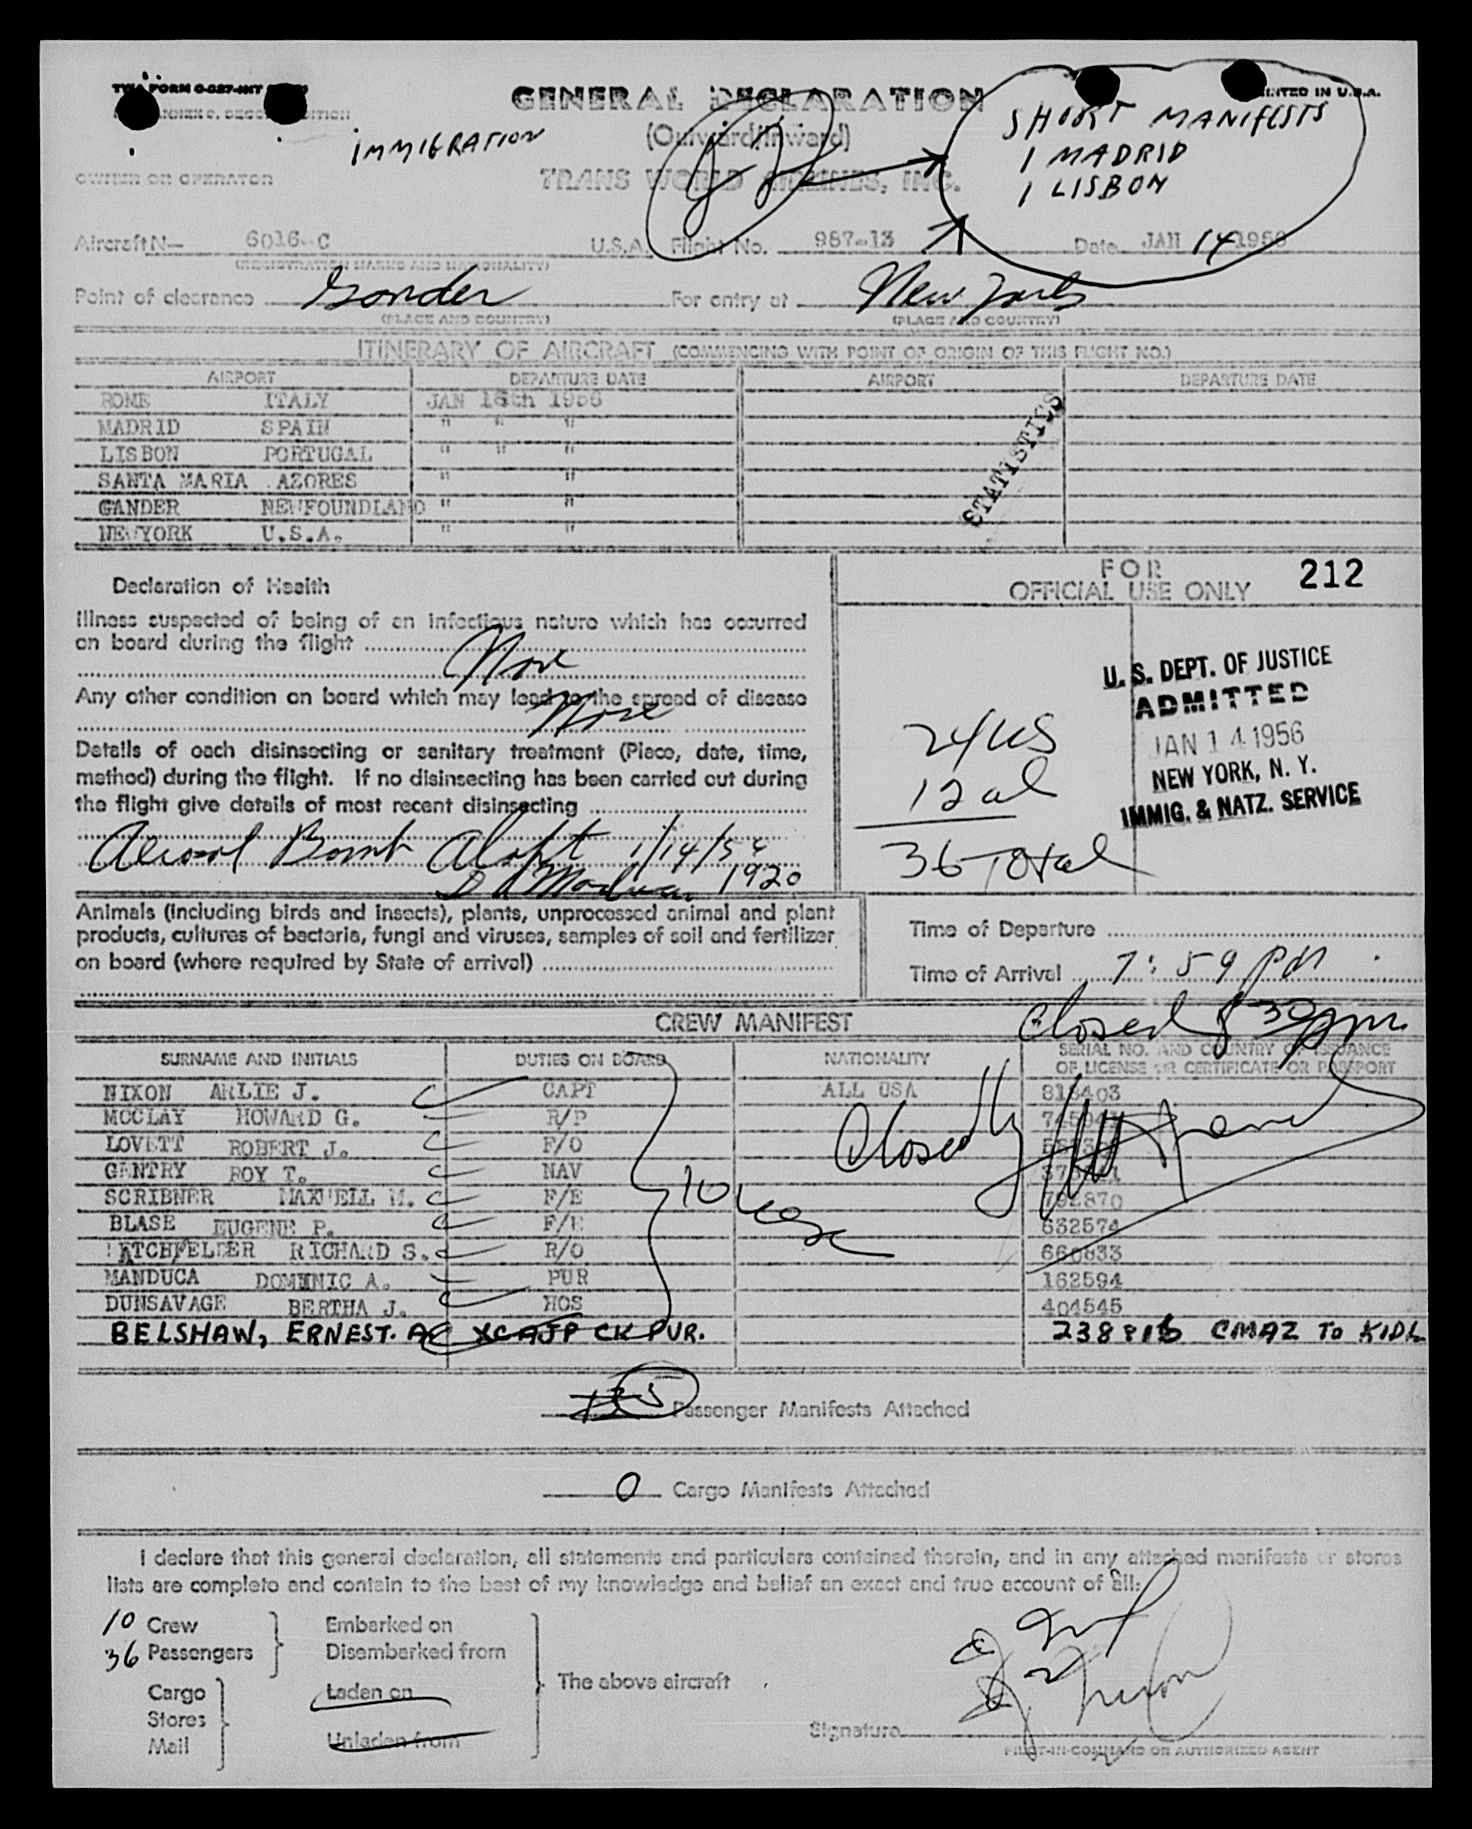 TWA FORM
PRINTED IN U.S.A.
GENERAL DECLARATION
IMMIGRATION
(Outward/Inward)
SHORT MANIFESTS
1 MADRID
1 LISBON
OWNER OR OPERATOR
TRANS WORLD AIRLINES, INC.
Aircraft N— 6016-C U.S.A. Flight No. 987-13 Date JAN 14 1956
(REGISTRATION MARKS AND NATIONALITY)
Point of clearance Gander For entry at New York
(PLACE AND COUNTRY) (PLACE AND COUNTRY)
ITINERARY OF AIRCRAFT (COMMENCING WITH POINT OF ORIGIN OF THIS FLIGHT NO.)
AIRPORT DEPARTURE DATE AIRPORT DEPARTURE DATE
ROME ITALY JAN 1956
MADRID SPAIN " " "
LISBON PORTUGAL " " "
SANTA MARIA AZORES " "
GANDER NEWFOUNDLAND " "
NEWYORK U.S.A. " "
STATISTICS
FOR
OFFICIAL USE ONLY 212
Declaration of Health
Illness suspected of being of an infectious nature which has occurred
on board during the flight
None
Any other condition on board which may lead to the spread of disease
None
Details of each disinsecting or sanitary treatment (Place, date, time,
method) during the flight. If no disinsecting has been carried out during
the flight give details of most recent disinsecting
Aerosol Bomb Aloft 1/14/56
1920
U.S. DEPT. OF JUSTICE
ADMITTED
JAN 14 1956
NEW YORK, N.Y.
IMMIG. & NATZ. SERVICE
24 US
12 al
36 Total
Animals (including birds and insects), plants, unprocessed animal and plant
products, cultures of bacteria, fungi and viruses, samples of soil and fertilizer
on board (where required by State of arrival)
Time of Departure
Time of Arrival 7:59 PM
Closed 8 30 pm
CREW MANIFEST
SURNAME AND INITIALS DUTIES ON BOARD NATIONALITY SERIAL NO. AND COUNTRY OF ISSUANCE
OF LICENSE OR CERTIFICATE OR PASSPORT
NIXON ARLIE J. CAPT ALL USA 818403
MCCLAY HOWARD G. R/P
LOVETT ROBERT J. F/O
GENTRY ROY T. NAV
SCRIBNER MAXWELL M. F/E 792870
BLASE EUGENE P. F/E 632574
RICHARD S. R/O 660833
MANDUCA DOMINIC A. PUR 162594
DUNSAVAGE BERTHA J. HOS 404545
BELSHAW, ERNEST. A CK PUR. CMAZ TO KIDL
Closed by
10
35 Passenger Manifests Attached
0 Cargo Manifests Attached
I declare that this general declaration, all statements and particulars contained therein, and in any attached manifests or stores
lists are complete and contain to the best of my knowledge and belief an exact and true account of all:
10 Crew
36 Passengers
Embarked on
Disembarked from
Cargo
Stores
Mail
Laden on
Unladen from
The above aircraft
Signature
PILOT-IN-COMMAND OR AUTHORIZED AGENT